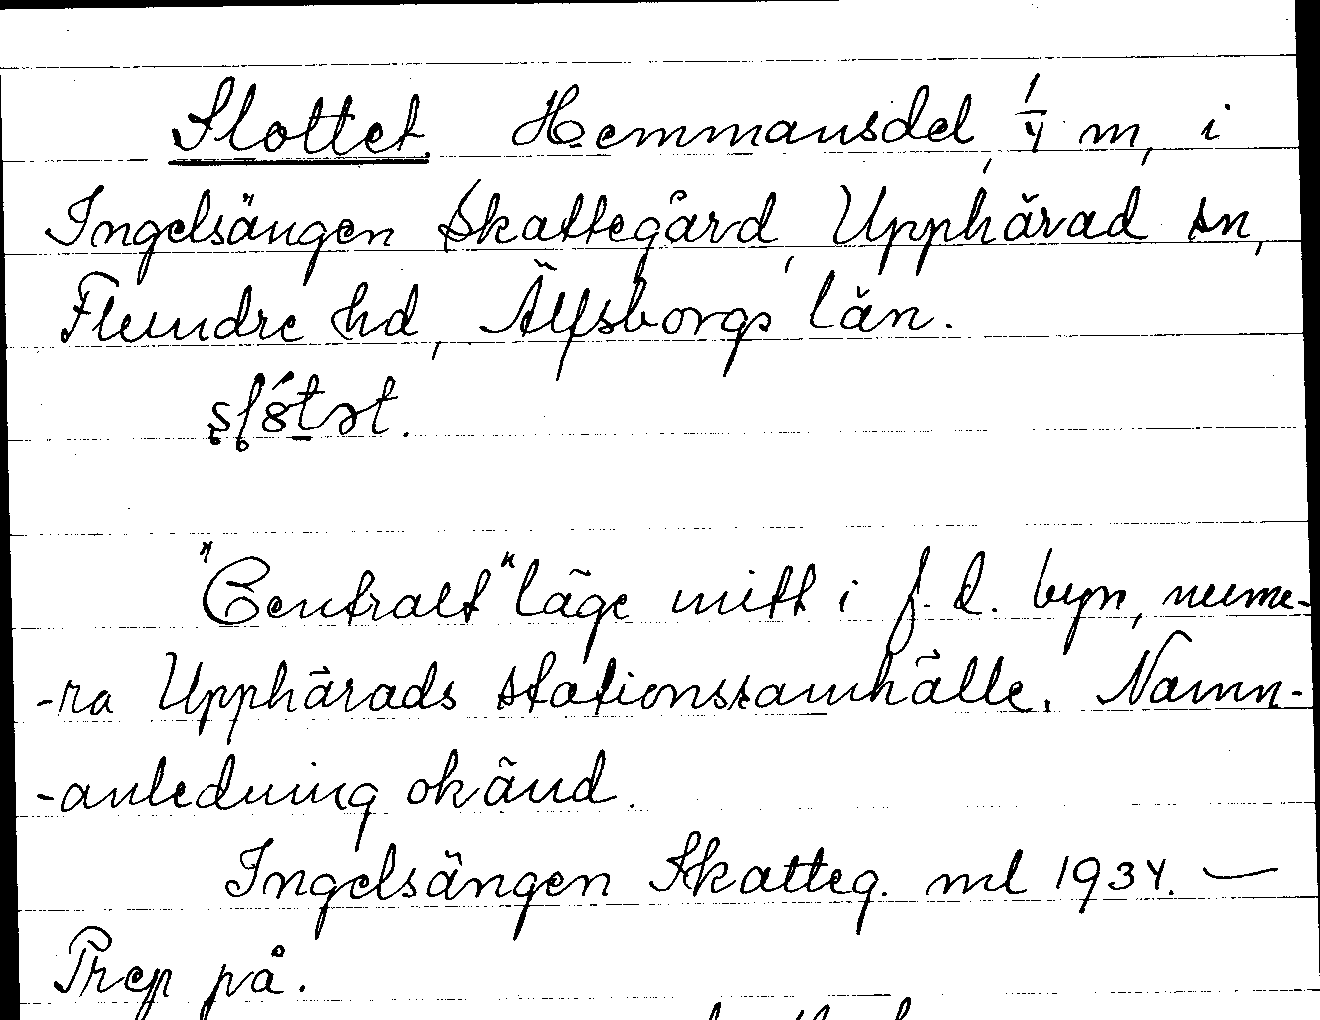 Slottet. Hemmansdel, 1/4 m, i
Ingelsängen Skattegård, Upphärad sn,
Flundre hd, Älfsborgs län.
"Centralt" läge mitt i f. d. byn, nume-
-ra Upphärads stationssamhälle. Namn-
-anledning okänd.
Ingelsängen Skatteg. ml 1934. —
Prep på.